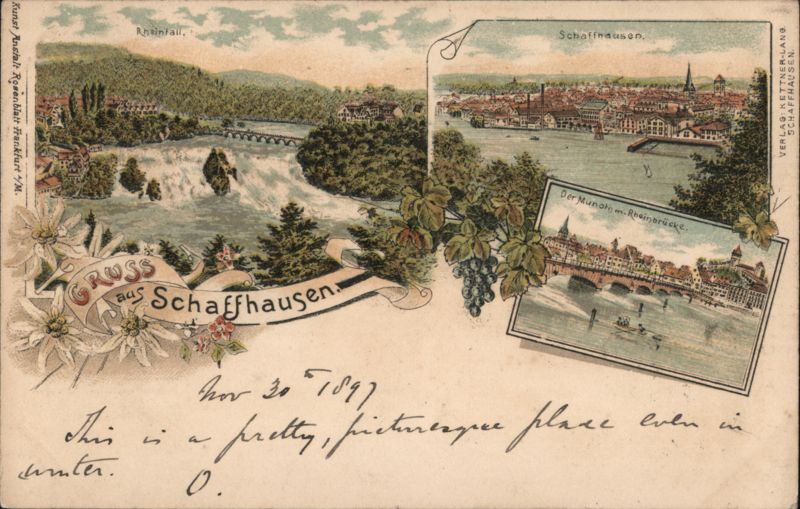 Kunst Anstalt Rosenblatt Frankfurt a/M.
Rheinfall.
Schaffhausen.
VERLAG: KETTNER-LANG.
SCHAFFHAUSEN.
Der Munoth m. Rheinbrücke.
GRUSS
aus Schaffhausen.
Nov 30th 1897
This is a pretty, picturesque place even in
winter.
O.